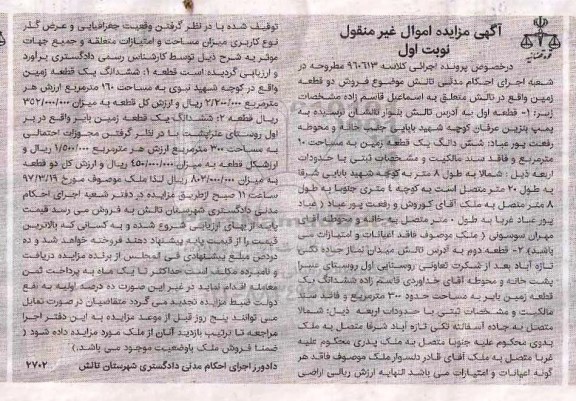 آگهی مزایده اموال غیر منقول
نوبت اول
درخصوص پرونده اجرائی کلاسه ۹۶۰۶۱۳ مطروحه در
شعبه اجرای احکام مدنی تالش موضوع فروش دو قطعه
زمین واقع در تالش متعلق به اسماعیل قاسم زاده مشخصات
زیر: ۱- قطعه اول به آدرس تالش بلوار تالشان نرسیده به
پمپ بنزین عرفان کوچه شهید بابایی جنب خانه و محوطه
رفعت پور عباد: شش دانگ یک قطعه زمین به مساحت ۱۶۰
مترمربع و فاقد سند مالکیت و مشخصات ثبتی با حدودات
اربعه ذیل : شمالا به طول ۸ متر به کوچه شهید بابایی شرقا
به طول ۲۰ متر متصل است به کوچه ٤ متری جنوبا به طول
۸ متر متصل به ملک آقای کوروش و رفعت پور عباد ( عباد
پور عباد غربا به طول ۲۰ متر متصل به خانه و محوطه آقای
مهران سوسونی ( ملک موصوف فاقد اعیانات و امتیازات می
باشد) ۲- قطعه دوم به آدرس تالش میدان نماز جاده تکی
تازه آباد بعد از شرکت تعاونی روستایی اول روستای سرا
پشت خانه و محوطه آقای خداوردی قاسم زاده ششدانگ یک
قطعه زمین بایر به مساحت حدود ۳۰۰ مترمربع و فاقد سند
مالکیت و مشخصات ثبتی با حدودات اربعه ذیل: شمالا
متصل به جاده آسفالته تکی تازه آباد شرقا متصل به ملک
پدوی محکوم علیه جنوبا متصل به ملک پدری محکوم علیه
غربا متصل به ملک آقای قادر دلسوار ملک موصوف فاقد هر
گونه اعیانات و امتیازات می باشد النهایه ارزش ریالی اراضی
توقیف شده با در نظر گرفتن وقعیت جغرافیایی و عرض گذر
نوع کاربری میزان مساحت و امتیازات متعلقه و جمیع جهات
موثر به شرح ذیل توسط کارشناس رسمی دادگستری برآورد
و ارزیابی گردیده است قطعه ۱: ششدانگ یک قطعه زمین
واقع در کوچه شهید نبوی به مساحت ۱۶۰ مترمربع ارزش هر
مترمربع ۲/۲۰۰/۰۰۰ ریال و ارزش کل قطعه به میزان ۳۵۲/۰۰۰/۰۰۰
ریال قطعه ۲: ششدانگ یک قطعه زمین بایر واقع در بر
اول روستای عنزپشت با در نظر گرفتن مجوزات احتمالی
به مساحت ۳۰۰ مترمربع ارزش هر مترمربع ۱/۵۰۰/۰۰۰ ریال و
ارزش کل قطعه به میزان ٤۵۰/۰۰۰/۰۰۰ ریال و ارزش کل دو قطعه
به میزان ۸۰۳/۰۰۰/۰۰۰ ریال لذا ملک موصوف مورخ ۹۷/۳/۱۹
ساعت ۱۱ صبح ازطریق مزایده در دفتر شعبه اجرای احکام
مدنی دادگستری شهرستان تالش به فروش می رسد قیمت
پایه از بهای ارزیابی شروع شده و به کسانی که بالاترین
قیمت را از قیمت پایه پیشنهاد دهند فروخته خواهد شد و ده
درصد مبلغ پیشنهادی فی المجلس از برنده مزایده دریافت
و نامبرده مکلف است حداکثر تا یک ماه به پرداخت ثمن
معامله اقدام نماید در غیر این صورت ده درصد اولیه به نفع
دولت ضبط مزایده تجدید می گردد متقاضیان در صورت تمایل
می توانند پنج روز قبل از موعد مزایده به این دفتر اجرا
مراجعه تا ترتیب بازدید آنان از ملک مورد مزایده داده شود (
ضمنا فروش ملک باوضعیت موجود می باشد.)
دادورز اجرای احکام مدنی دادگستری شهرستان تالش ۲۷۰۲